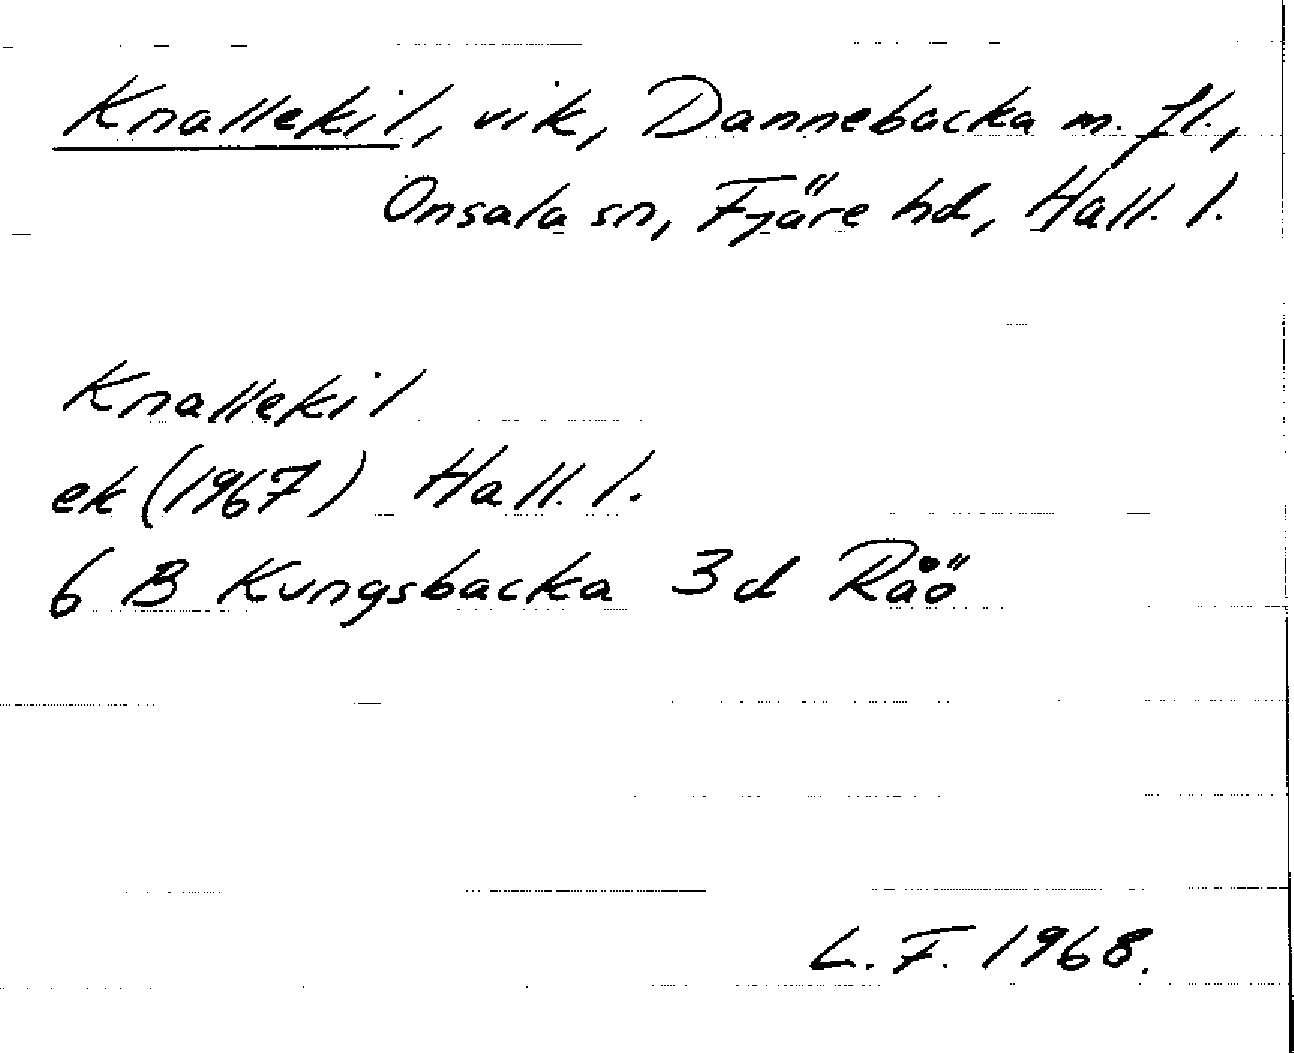 Knallekil, vik, Dannebacka m. fl.,
Onsala sn, Fjäre hd, Hall. l.
Knallekil
ek (1967) Hall. l.
6 B Kungsbacka 3d Råö
L. F. 1968.